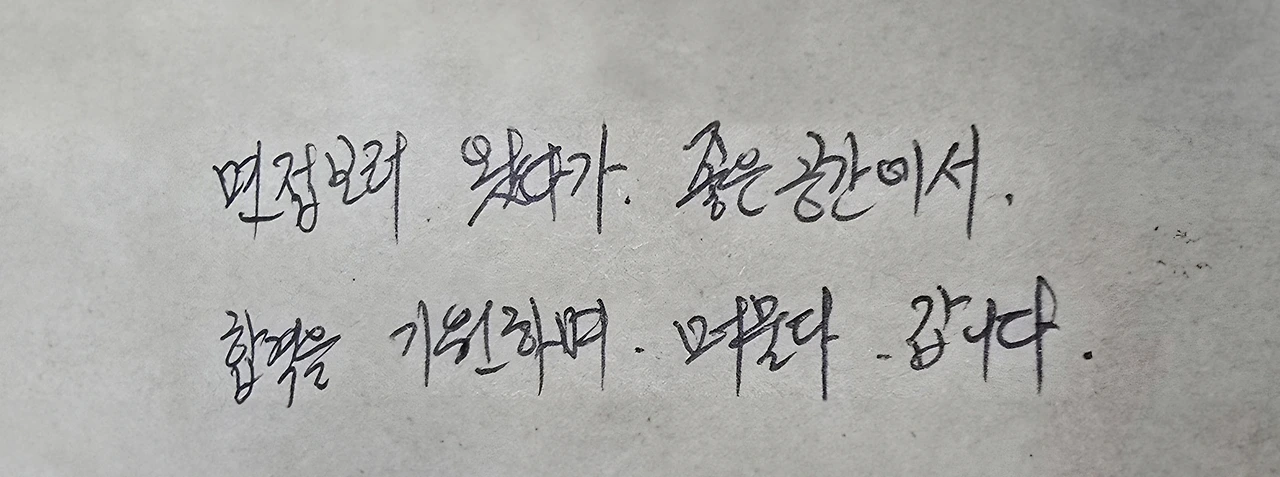 면접보러 왔다가. 좋은공간에서.
합격을 기원하며. 머물다. 갑니다.